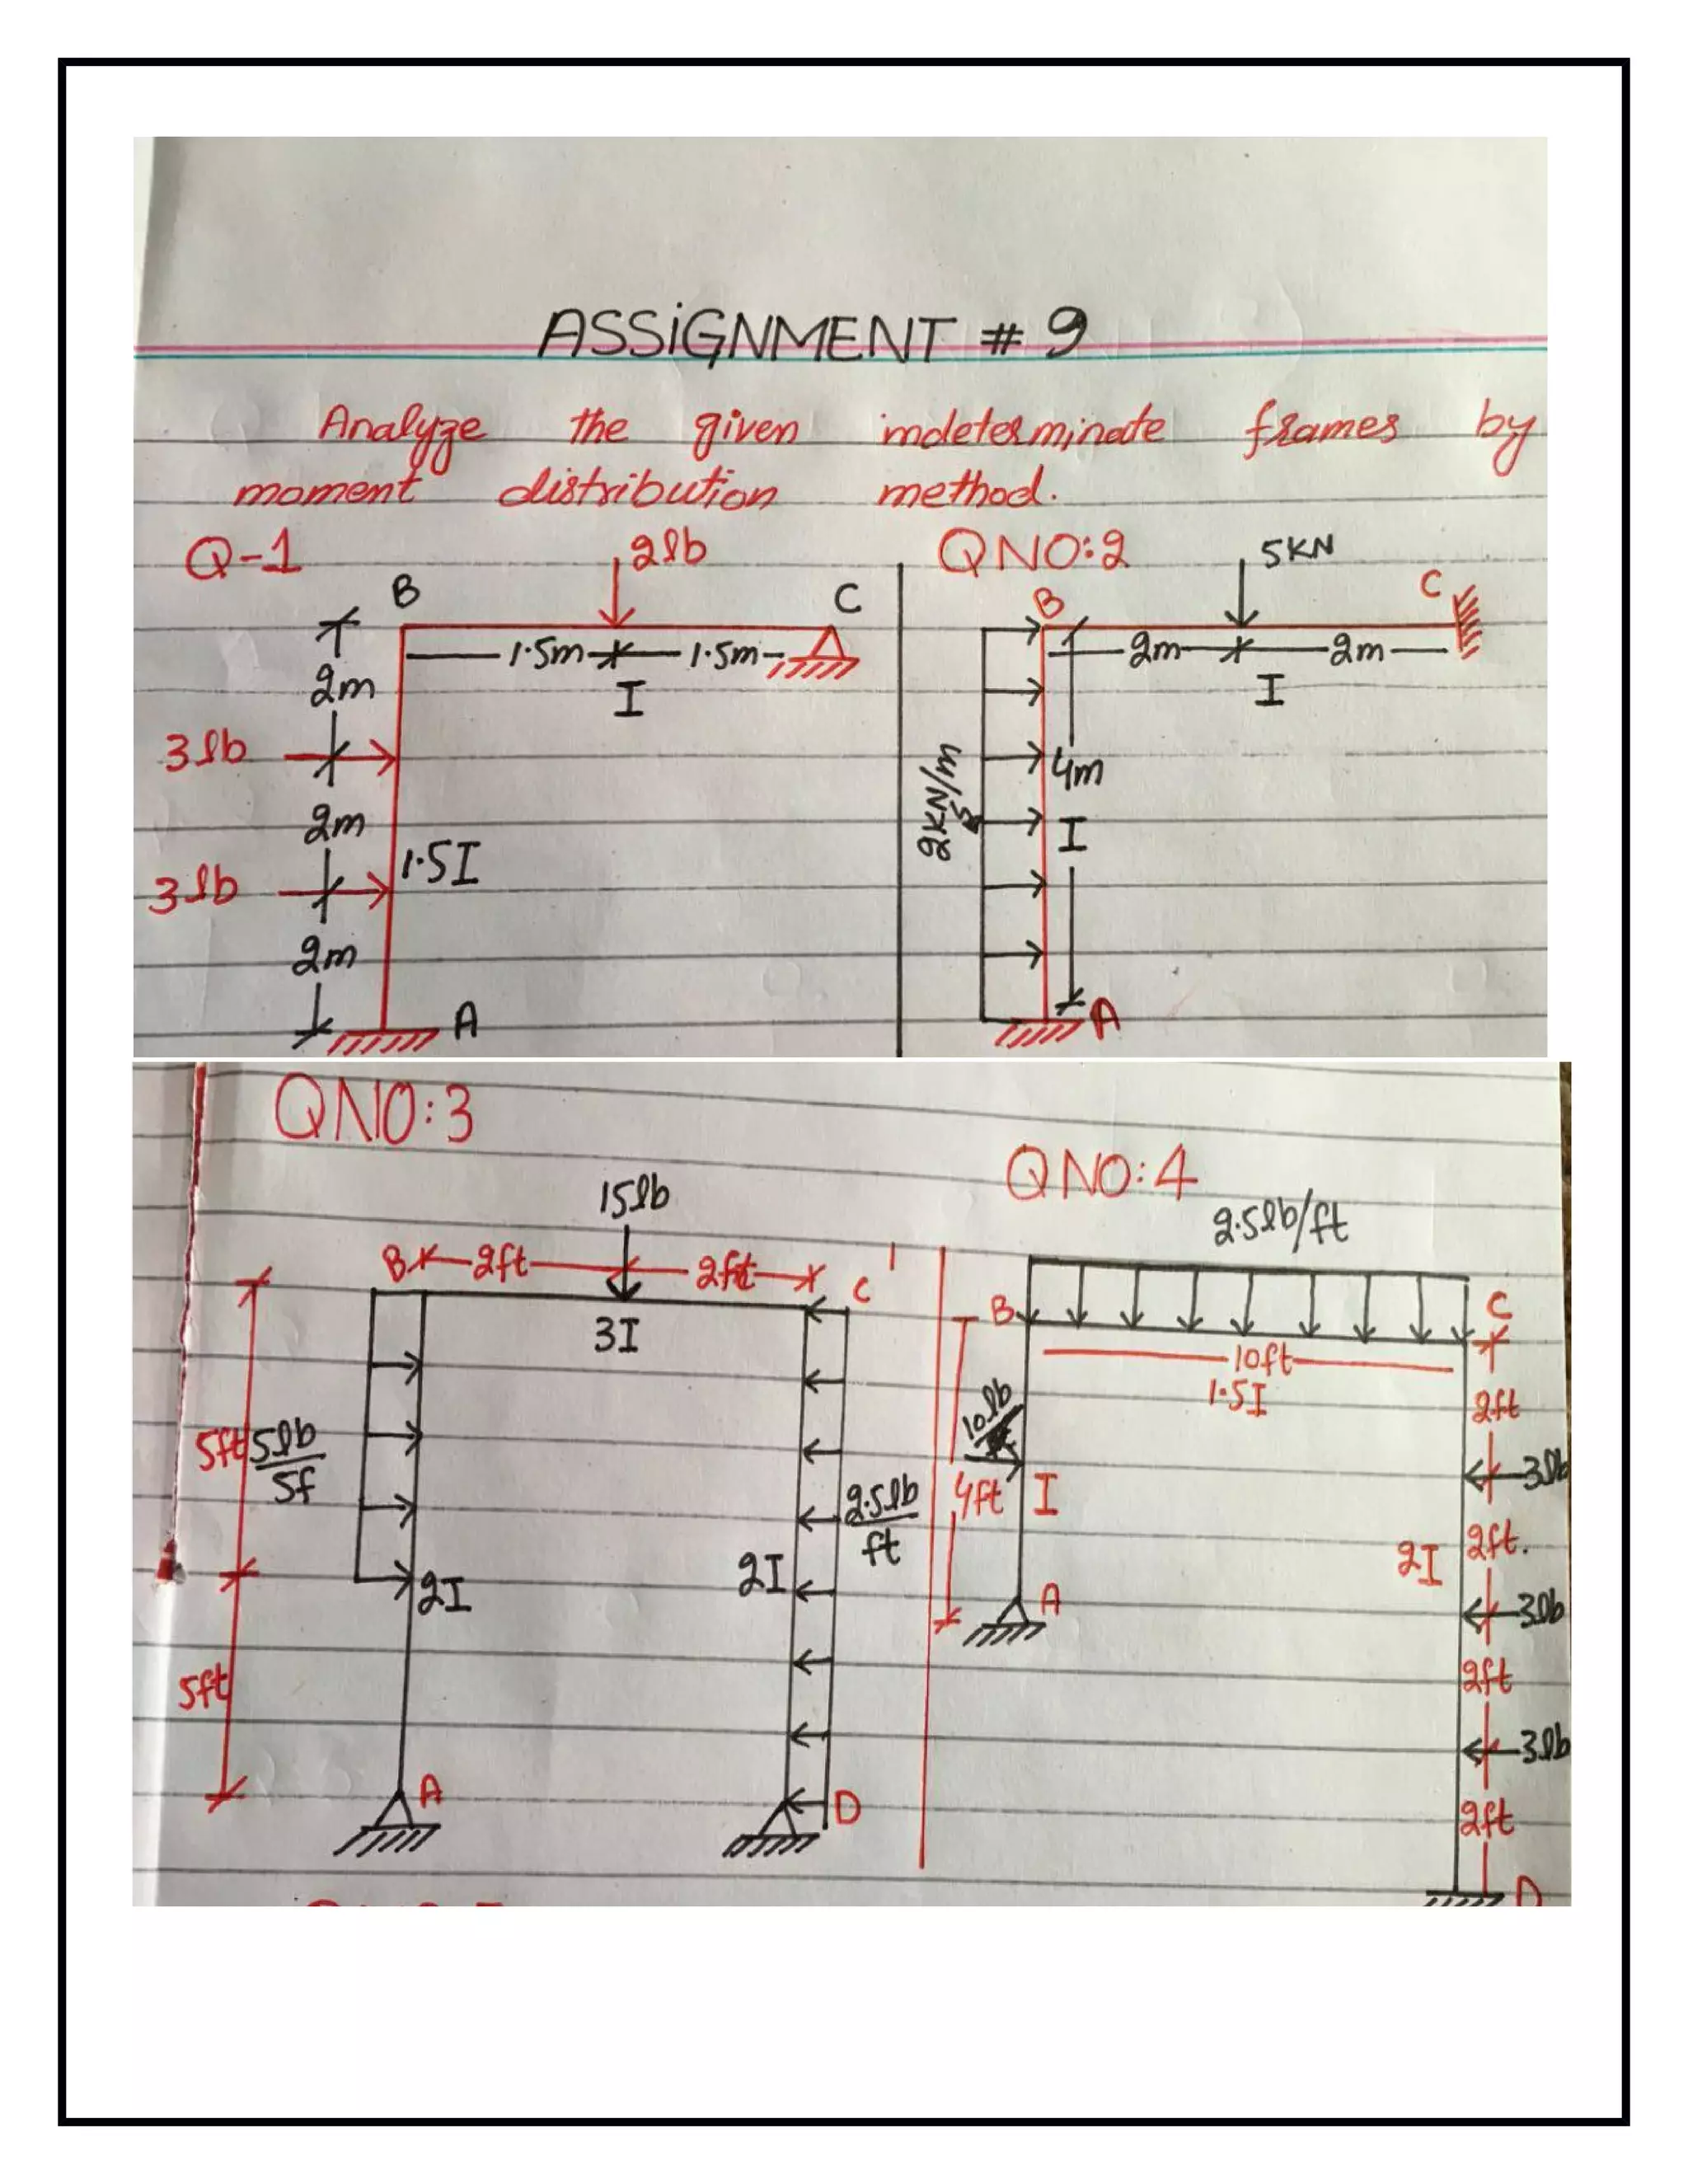 ASSiGNMENT # 9
Analyze the given indeterminate frames by
moment distribution method.
Q-1
2lb
B
C
1.5m
1.5m
I
2m
3lb
2m
1.5I
3lb
2m
A
QNO:2
5KN
B
C
2m
2m
I
2KN/m
4m
I
A
QNO:3
15lb
B
2ft
2ft
C
3I
5ft
5lb
5f
2.5lb
ft
2I
2I
5ft
A
D
QNO:4
2.5lb/ft
B
C
10ft
1.5I
2ft
10lb
3lb
4ft
I
2ft.
2I
A
3lb
2ft
3lb
2ft
D